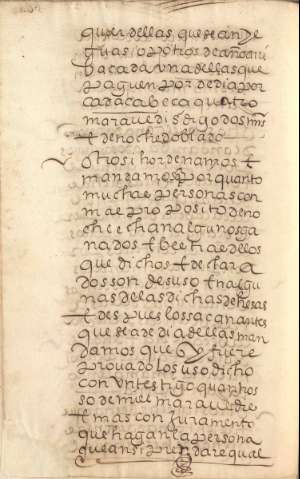 quier dellas, que sean de
guas i o potros de año arri
ba cada una dellas que
paguen por de dia por
cada cabeca quatro
maravedis de yodos mrs
t de noche doblado
otrosi hordenamos t
mandamos por quanto
muchas personas con
mal proposito de no
che echan algunos ga
nados t bestias de los
que dichos t declara
dos son desuso t n algu
nas de las dichas dehesas
t despues los sacan antes
que sea de dia dellas man
damos que si fuere
provado lo suso dicho
con un testigo quanto
so de mill maravedis
t mas con juramento
que haga la persona
que ansi prendare qual